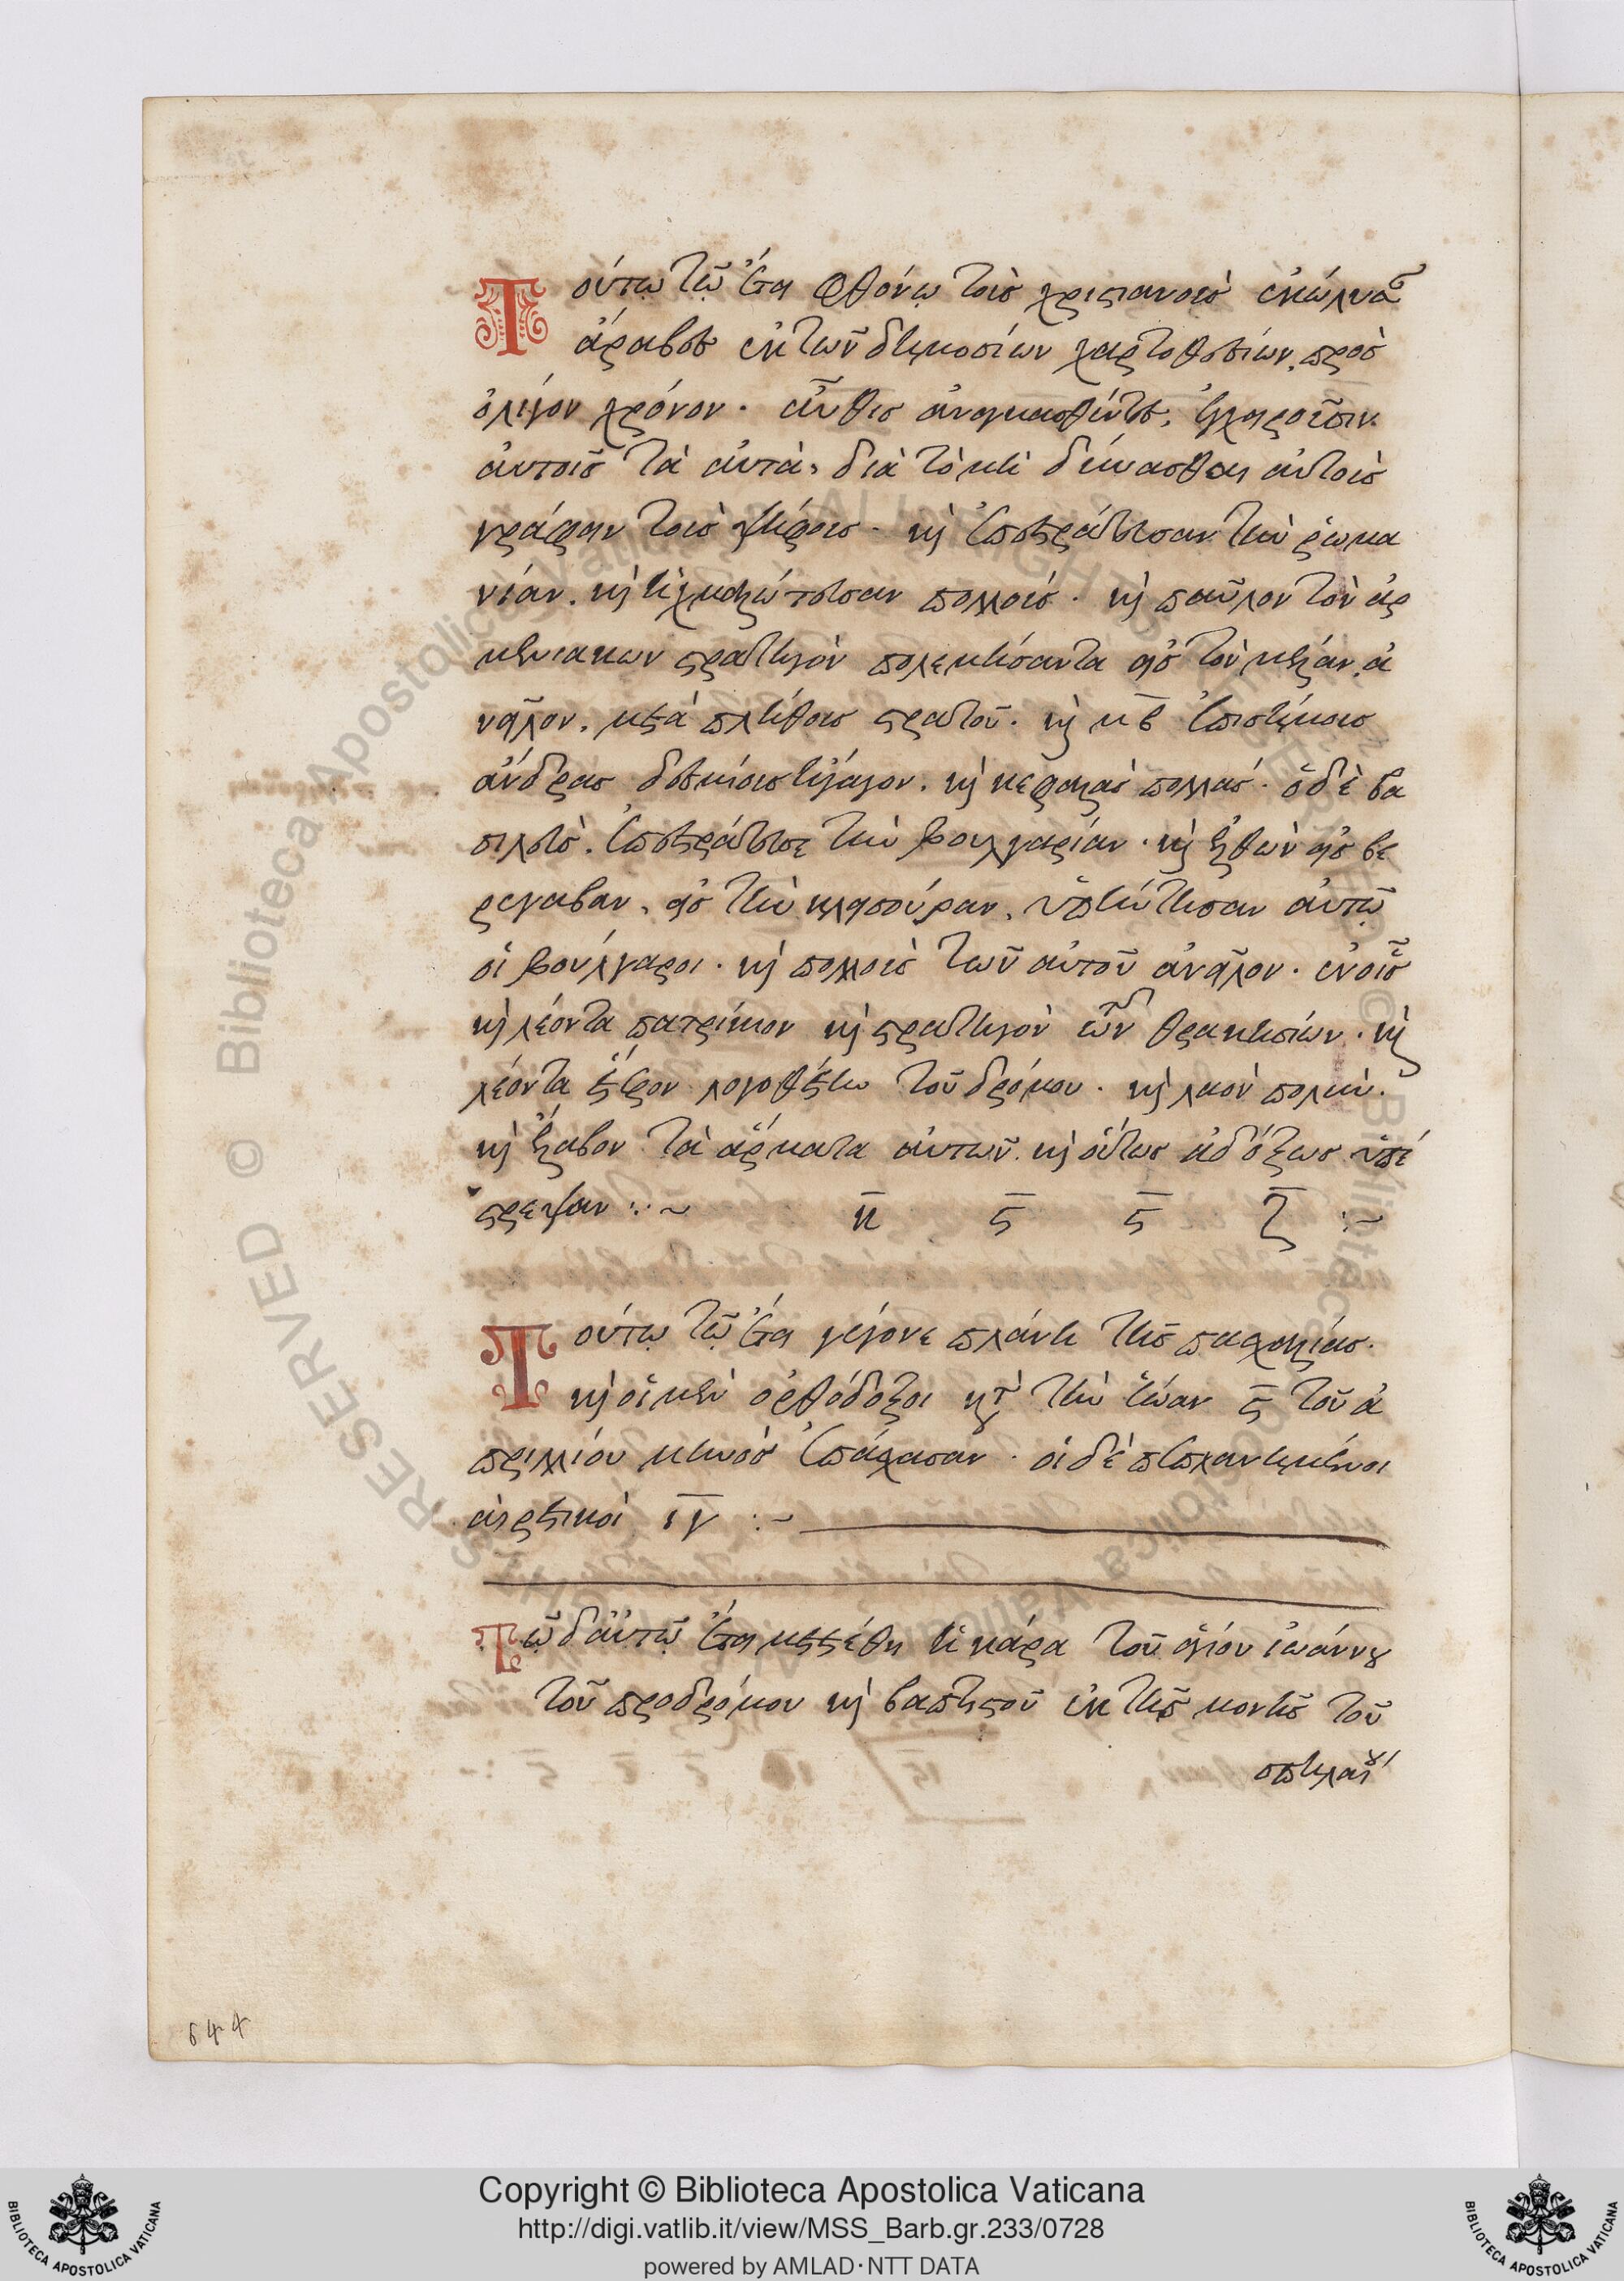 Τούτω τῷ ἔτει φθόνῳ τοὺς χριστιανοὺς ἐκώλυσαν
ἄραβες ἐκ τῶν δημοσίων χαρτοθεσίων. πρὸς
ὀλίγον χρόνον. αὖθις ἀναγκασθέντες, ἐγχειροῦσιν
αὐτοῖς τὰ αὐτὰ, διὰ τὸ μὴ δύνασθαι αὐτοὺς
γράφειν τοὺς ψήφους. καὶ ἐπεστράτευσαν τὴν ῥωμα
νίαν. καὶ ἠχμαλώτευσαν πολλούς. καὶ παῦλον τὸν ἀρ
μενιακῶν στρατηγὸν πολεμήσαντα εἰς τὸν μελάν, ἀ
νεῖλον, μετὰ πλήθους στρατοῦ. καὶ μ̅β̅ ἐπισήμους
ἄνδρας δεσμίους ἤγαγον. καὶ κεφαλὰς πολλάς. ὁ δὲ βα
σιλεὺς. ἐπεστράτευσε τὴν βουλγαρίαν. καὶ ἐλθὼν εἰς βε
ρεγαβαν, εἰς τὴν κλεισούραν, ὑπήντησαν αὐτῷ
οἱ βούλγαροι. καὶ πολλοὺς τῶν αὐτοῦ ἀνεῖλον. ἐν οἷς
καὶ λέοντα πατρίκιον καὶ στρατηγὸν τῶν θρακησίων. καὶ
λέοντα ἕτερον λογοθέτην τοῦ δρόμου. καὶ λαὸν πολὺν.
καὶ ἔλαβον τὰ ἄρματα αὐτῶν. καὶ οὕτως ἀδόξως ὑπέ
στρεψαν :~ κ̅ ς̅ ς̅ ζ̅ :~
Τούτῳ τῷ ἔτει γέγονε πλάνη τῆς πασχαλίας.
καὶ οἱ μὲν ὀρθόδοξοι κατὰ τὴν ἕω̈αν ς̅ τοῦ ἀ
πριλλίου μηνὸς ἐπάσχασαν. οἱ δὲ πεπλανημένοι
αἱρετικοὶ ι̅γ̅ :~
Τῷ δ' αὐτῷ ἔτει μετετέθη ἡ κάρα τοῦ ἁγίου ἰωάννου
τοῦ προδρόμου καὶ βαπτιστοῦ ἐκ τῆς μονῆς τοῦ
σπηλαίου
644
Copyright © Biblioteca Apostolica Vaticana
http://digi.vatlib.it/view/MSS_Barb.gr.233/0728
powered by AMLAD·NTT DATA